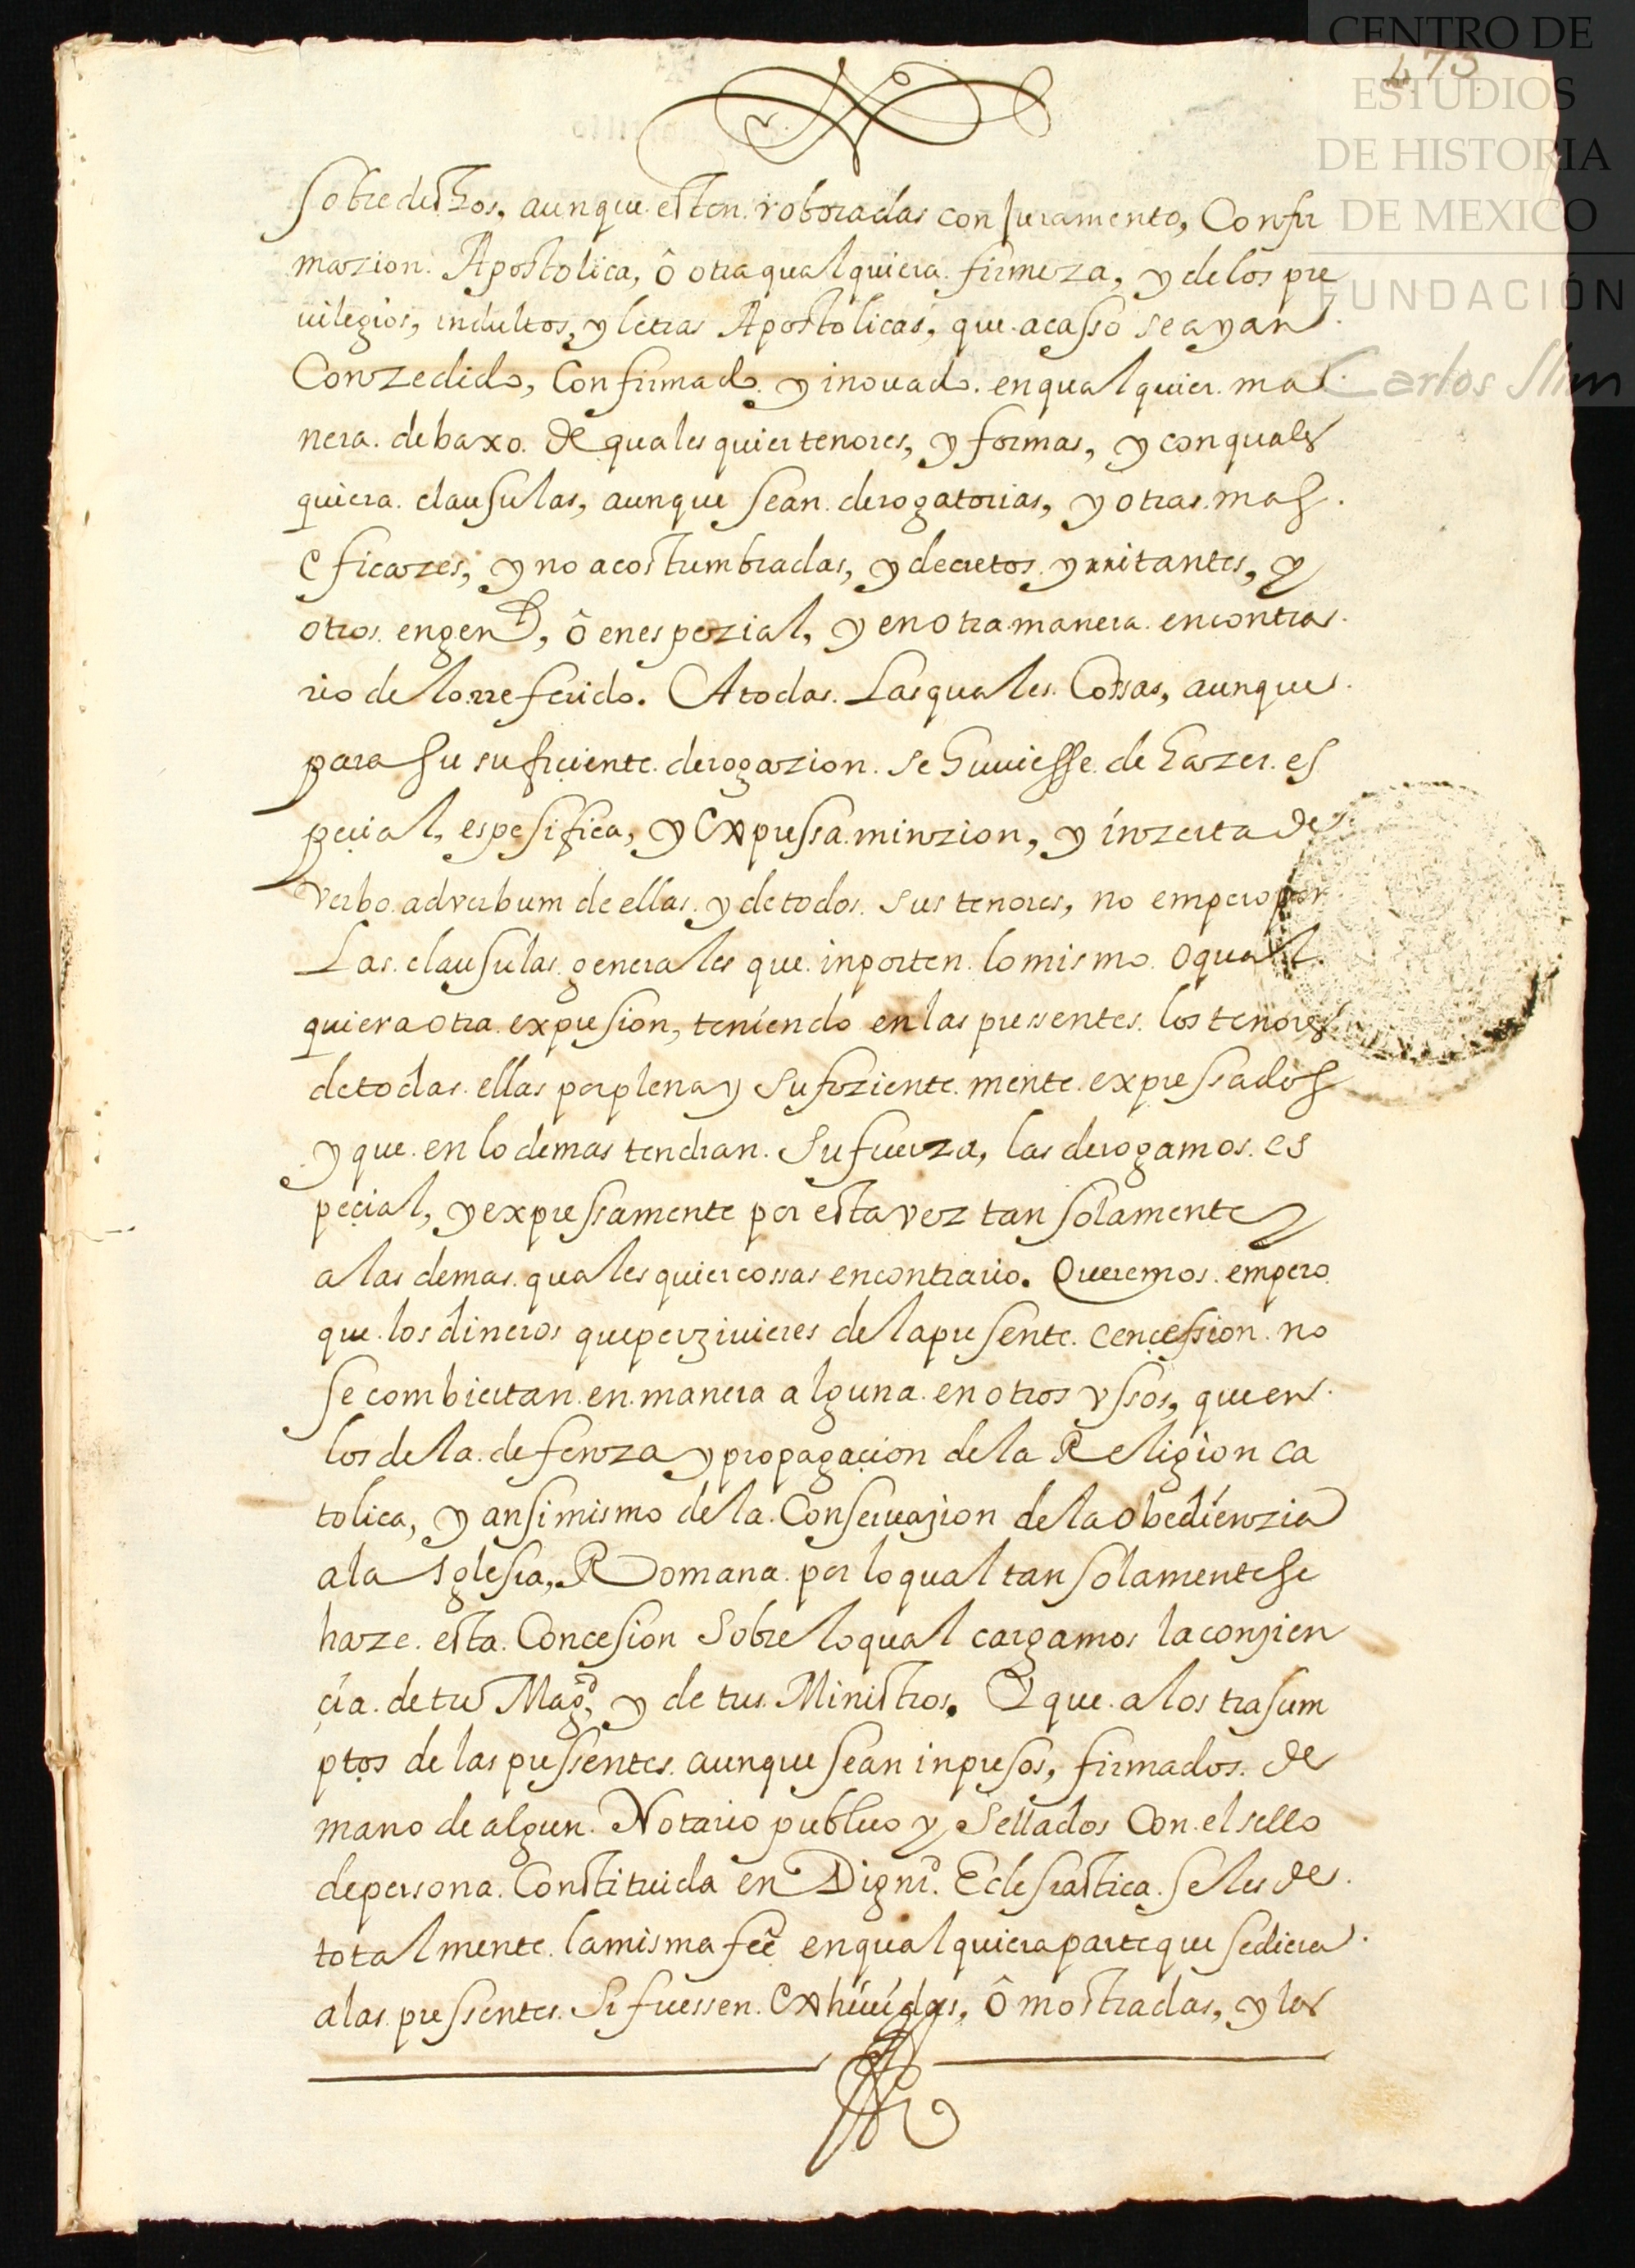 CENTRO DE
ESTUDIOS
DE HISTORIA
DE MEXICO
FUNDACIÓN
Carlos Slim
473
Sobredichos, aunque esten roboradas con Juramento, Confir
mazion Apostolica, ô otra qualquiera firmeza, y de los pre
uilegios, indultos, y letras Apostolicas, que acasso se ayan
Conzedido, Confirmado y inouado en qualquier ma
nera debaxo de quales quier tenores, y formas, y con quales
quiera clausulas, aunque sean derogatorias, y otras mas
eficazes, y no acostumbradas, y decretos yrritantes, y
otros en genl, ô en espezial, y en otra manera en contra
rio de lo rreferido. A todas Las quales Cossas, aunque
para su suficiente derogazion se huuiesse de hazer es
peçial, espesifica, y expressa minzion, y inzerta de
verbo adverbum de ellas y de todos sus tenores, no empero por
Las clausulas generales que inporten lo mismo o qual
quiera otra expresion, teniendo en las presentes los tenores
de todas ellas por plena y sufizientemente expressados
y que en lo demas tendran su fuerza, las derogamos es
peçial, y expressamente por esta vez tan solamente y
a las demas quales quier cossas en contrario. Queremos empero
que los dineros que perziuieres de la presente concession no
se combiertan en manera alguna en otros vssos, que en
los de la defenza y propagaçion de la Religion Ca
tolica, y ansimismo de la Conseruazion de la Obedienzia
a la Iglesia, Romana por lo qual tan solamente se
haze esta Concesion sobre lo qual cargamos la conzien
çia de tu Magd, y de tus Ministros. Y que a los trasum
ptos de las pressentes aunque sean inpresos, firmados de
mano de algun Notario publico y sellados con el sello
de persona Constituida en Dignd. Eclesiastica se les de
totalmente la misma fee en qualquiera parte que se diera
a las pressentes si fuessen exhiuidas, ô mostradas, y los